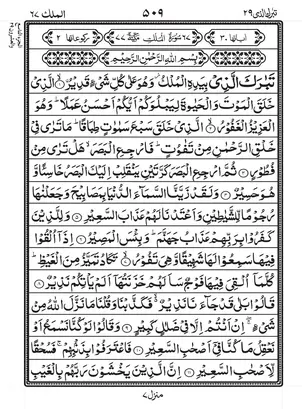 تبٰرك الذی ٢٩ ٥٠٩ الملك ٦٧
اٰیاتها ٣٠ ٦٧ سورة الملك مكية ٧٧ ركوعاتها ٢
بِسْمِ اللّٰهِ الرَّحْمٰنِ الرَّحِيْمِ
تَبٰرَكَ الَّذِيْ بِيَدِهِ الْمُلْكُ وَهُوَ عَلٰى كُلِّ شَيْءٍ قَدِيْرُ ۙ﴿١﴾ الَّذِيْ
خَلَقَ الْمَوْتَ وَالْحَيٰوةَ لِيَبْلُوَكُمْ اَيُّكُمْ اَحْسَنُ عَمَلًا ؕ وَهُوَ
الْعَزِيْزُ الْغَفُوْرُ ۙ﴿٢﴾ الَّذِيْ خَلَقَ سَبْعَ سَمٰوٰتٍ طِبَاقًا ؕ مَا تَرٰى فِيْ
خَلْقِ الرَّحْمٰنِ مِنْ تَفٰوُتٍ ؕ فَارْجِعِ الْبَصَرَ ۙ هَلْ تَرٰى مِنْ
فُطُوْرٍ ﴿٣﴾ ثُمَّ ارْجِعِ الْبَصَرَ كَرَّتَيْنِ يَنْقَلِبْ اِلَيْكَ الْبَصَرُ خَاسِئًا وَّ
هُوَ حَسِيْرٌ ﴿٤﴾ وَلَقَدْ زَيَّنَّا السَّمَآءَ الدُّنْيَا بِمَصَابِيْحَ وَجَعَلْنٰهَا
رُجُوْمًا لِّلشَّيٰطِيْنِ وَاَعْتَدْنَا لَهُمْ عَذَابَ السَّعِيْرِ ﴿٥﴾ وَلِلَّذِيْنَ
كَفَرُوْا بِرَبِّهِمْ عَذَابُ جَهَنَّمَ ؕ وَبِئْسَ الْمَصِيْرُ ﴿٦﴾ اِذَآ اُلْقُوْا
فِيْهَا سَمِعُوْا لَهَا شَهِيْقًا وَّهِيَ تَفُوْرُ ۙ﴿٧﴾ تَكَادُ تَمَيَّزُ مِنَ الْغَيْظِ ؕ
كُلَّمَآ اُلْقِيَ فِيْهَا فَوْجٌ سَاَلَهُمْ خَزَنَتُهَآ اَلَمْ يَاْتِكُمْ نَذِيْرٌ ﴿٨﴾
قَالُوْا بَلٰى قَدْ جَآءَنَا نَذِيْرٌ ۙ۬ فَكَذَّبْنَا وَقُلْنَا مَا نَزَّلَ اللّٰهُ مِنْ
شَيْءٍ ۚۖ اِنْ اَنْتُمْ اِلَّا فِيْ ضَلٰلٍ كَبِيْرٍ ﴿٩﴾ وَقَالُوْا لَوْ كُنَّا نَسْمَعُ اَوْ
نَعْقِلُ مَا كُنَّا فِيْٓ اَصْحٰبِ السَّعِيْرِ ﴿١٠﴾ فَاعْتَرَفُوْا بِذَنْۢبِهِمْ ۚ فَسُحْقًا
لِّاَصْحٰبِ السَّعِيْرِ ﴿١١﴾ اِنَّ الَّذِيْنَ يَخْشَوْنَ رَبَّهُمْ بِالْغَيْبِ
منزل ٧